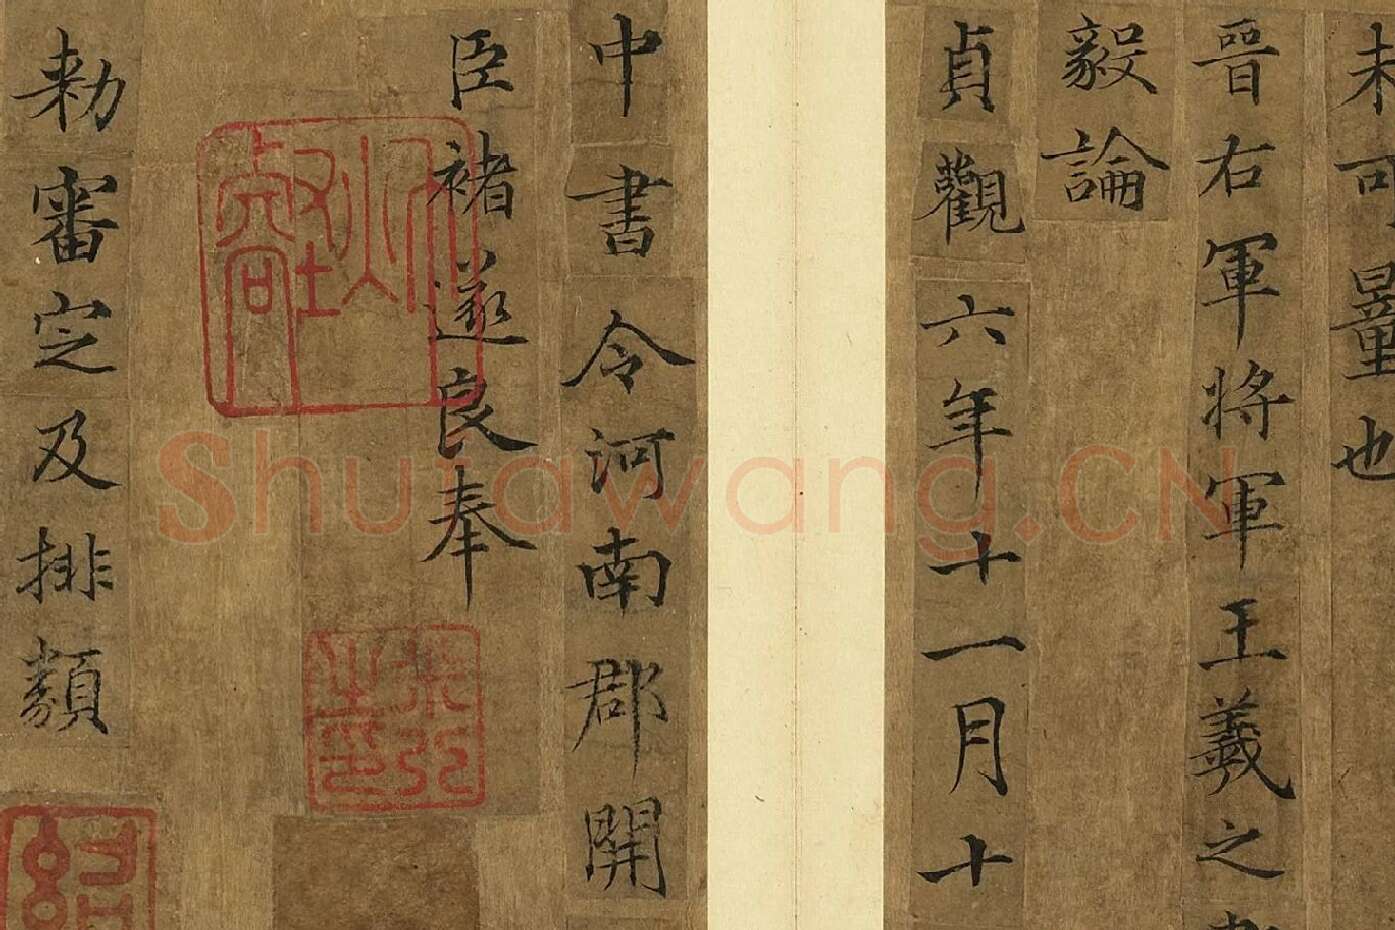 未可量也
晉右軍將軍王羲之
毅論
貞觀六年十一月十
中書令河南郡開
臣褚遂良奉
勑審定及排類
Shufawang.CN